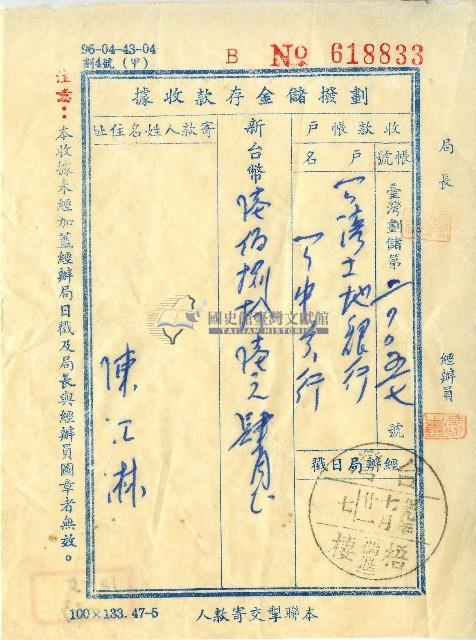 96-04-43-04
劃4號(甲)
B № 618833
劃撥儲金存款收據
收款帳戶
帳號
臺灣劃儲第
二〇〇五七
號
戶名
台灣土地銀行
台中分行
經辦局日戳
新台幣陸佰捌拾陸元肆角
寄款人姓名住址
陳江淋
局長
經辦員
注意：本收據未經加蓋經辦局日戳及局長與經辦員圖章者無效。
國史館臺灣文獻館
TAIWAN HISTORICA
台灣
梧棲
100×133. 47-5
本聯掣交寄款人